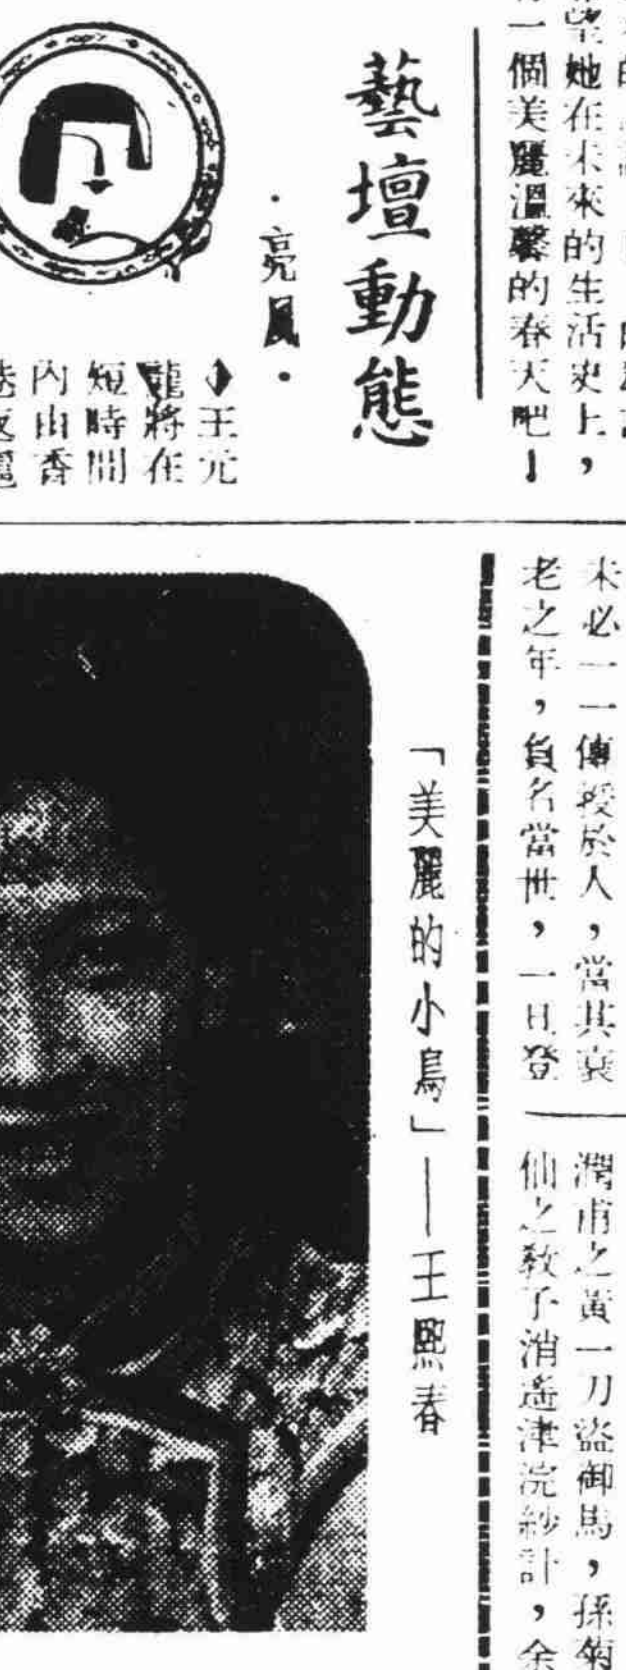 望她在未來的生活史上，
一個美麗溫馨的春天吧！
藝壇動態
·亮風·
◆王元
龍將在
短時間
內由香
未必一一傳授於人，當其衰
老之年，負名當世，一日登
潤甫之黃一刀盜御馬，孫菊
仙之教子消遙津浣紗計，余
「美麗的小鳥」——王熙春